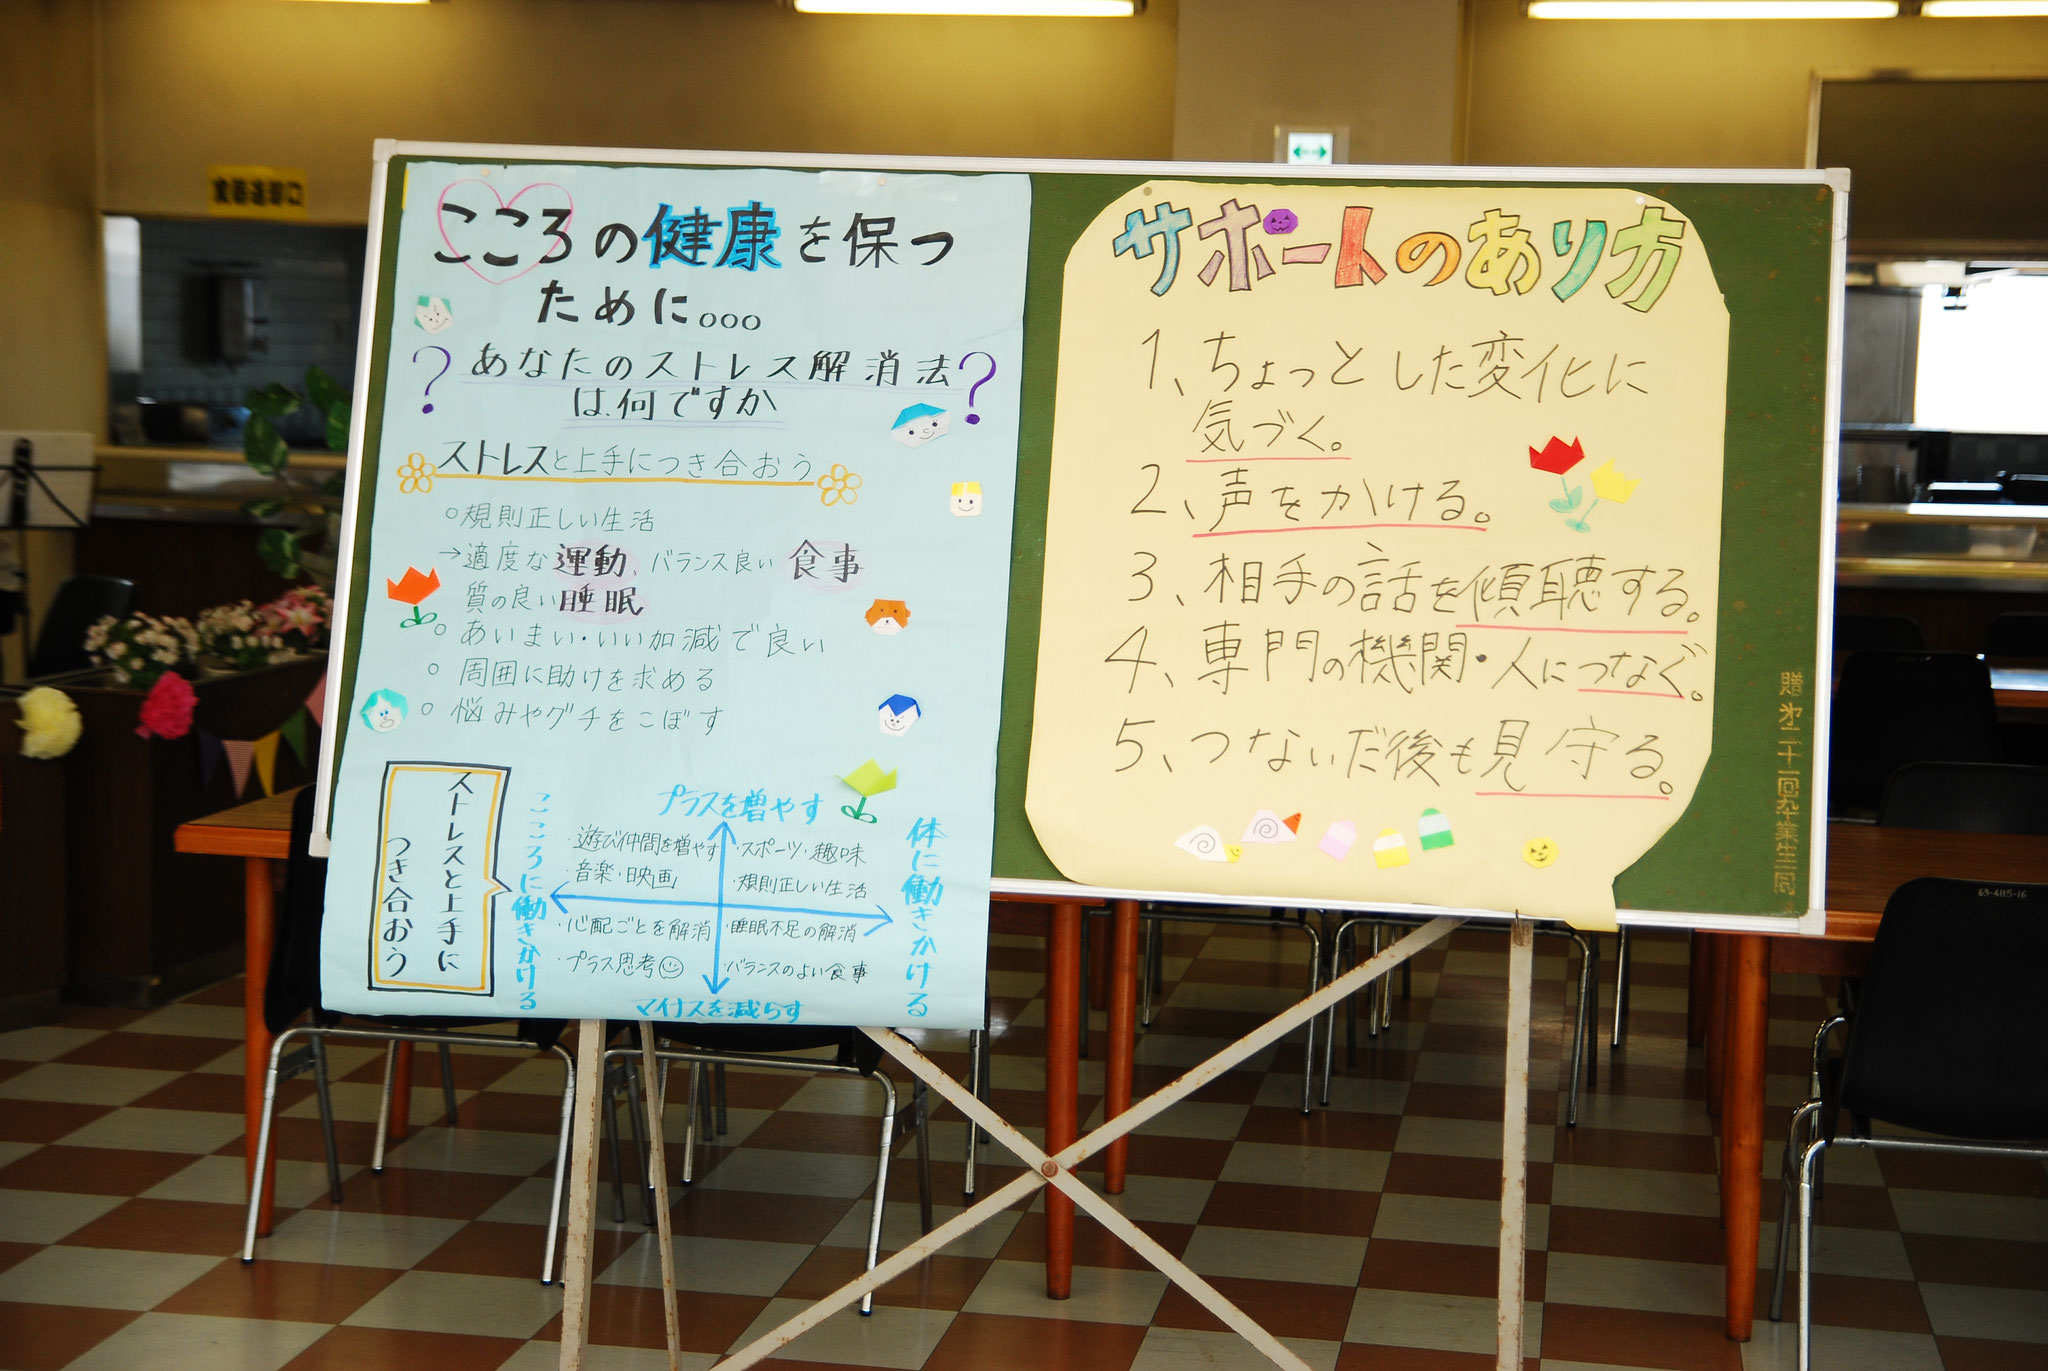 食器返却口
こころの健康を保つ
ために。ooo
? あなたのストレス解消法 ?
は何ですか
ストレスと上手につき合おう
○規則正しい生活
→適度な運動、バランス良い食事
質の良い睡眠
○あいまい・いい加減で良い
○周囲に助けを求める
○悩みやグチをこぼす
ストレスと上手に
つき合おう
こころに働きかける
プラスを増やす
・遊び仲間を増やす
・音楽・映画
・スポーツ・趣味
・規則正しい生活
・心配ごとを解消
・プラス思考
・睡眠不足の解消
・バランスのよい食事
マイナスを減らす
体に働きかける
サポートのあり方
1、ちょっとした変化に
気づく。
2、声をかける。
3、相手の話を傾聴する。
4、専門の機関・人につなぐ。
5、つないだ後も見守る。
贈 第二十一回卒業生一同
63-4115-16